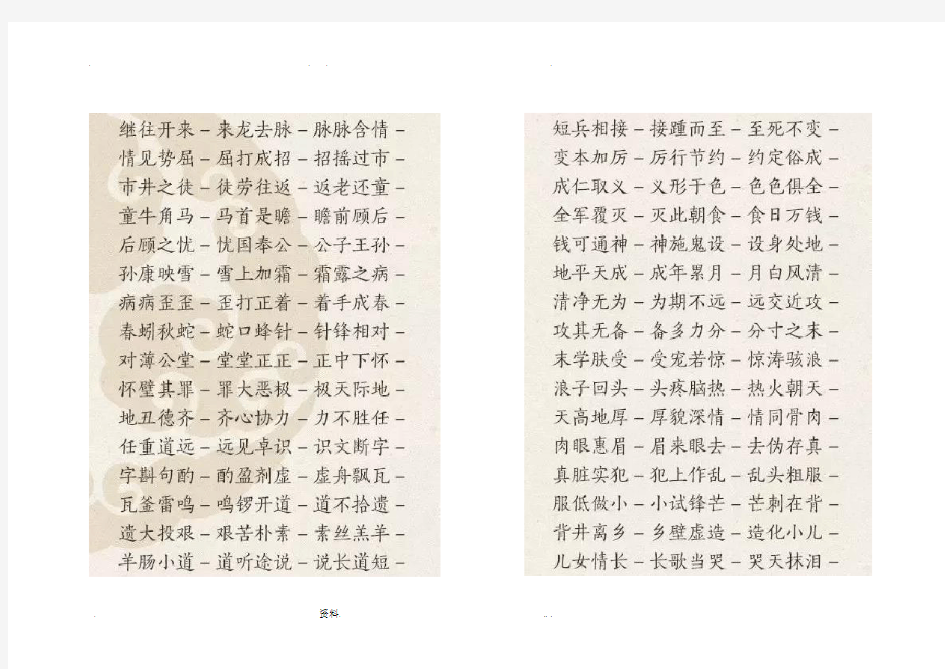 继往开来－来龙去脉－脉脉含情－
情见势屈－屈打成招－招摇过市－
市井之徒－徒劳往返－返老还童－
童牛角马－马首是瞻－瞻前顾后－
后顾之忧－忧国奉公－公子王孙－
孙康映雪－雪上加霜－霜露之病－
病病歪歪－歪打正着－着手成春－
春蚓秋蛇－蛇口蜂针－针锋相对－
对薄公堂－堂堂正正－正中下怀－
怀璧其罪－罪大恶极－极天际地－
地丑德齐－齐心协力－力不胜任－
任重道远－远见卓识－识文断字－
字斟句酌－酌盈剂虚－虚舟飘瓦－
瓦釜雷鸣－鸣锣开道－道不拾遗－
遗大投艰－艰苦朴素－素丝羔羊－
羊肠小道－道听途说－说长道短－
短兵相接－接踵而至－至死不变－
变本加厉－厉行节约－约定俗成－
成仁取义－义形于色－色色俱全－
全军覆灭－灭此朝食－食日万钱－
钱可通神－神施鬼设－设身处地－
地平天成－成年累月－月白风清－
清净无为－为期不远－远交近攻－
攻其无备－备多力分－分寸之末－
末学肤受－受宠若惊－惊涛骇浪－
浪子回头－头疼脑热－热火朝天－
天高地厚－厚貌深情－情同骨肉－
肉眼惠眉－眉来眼去－去伪存真－
真脏实犯－犯上作乱－乱头粗服－
服低做小－小试锋芒－芒刺在背－
背井离乡－乡壁虚造－造化小儿－
儿女情长－长歌当哭－哭天抹泪－
资料